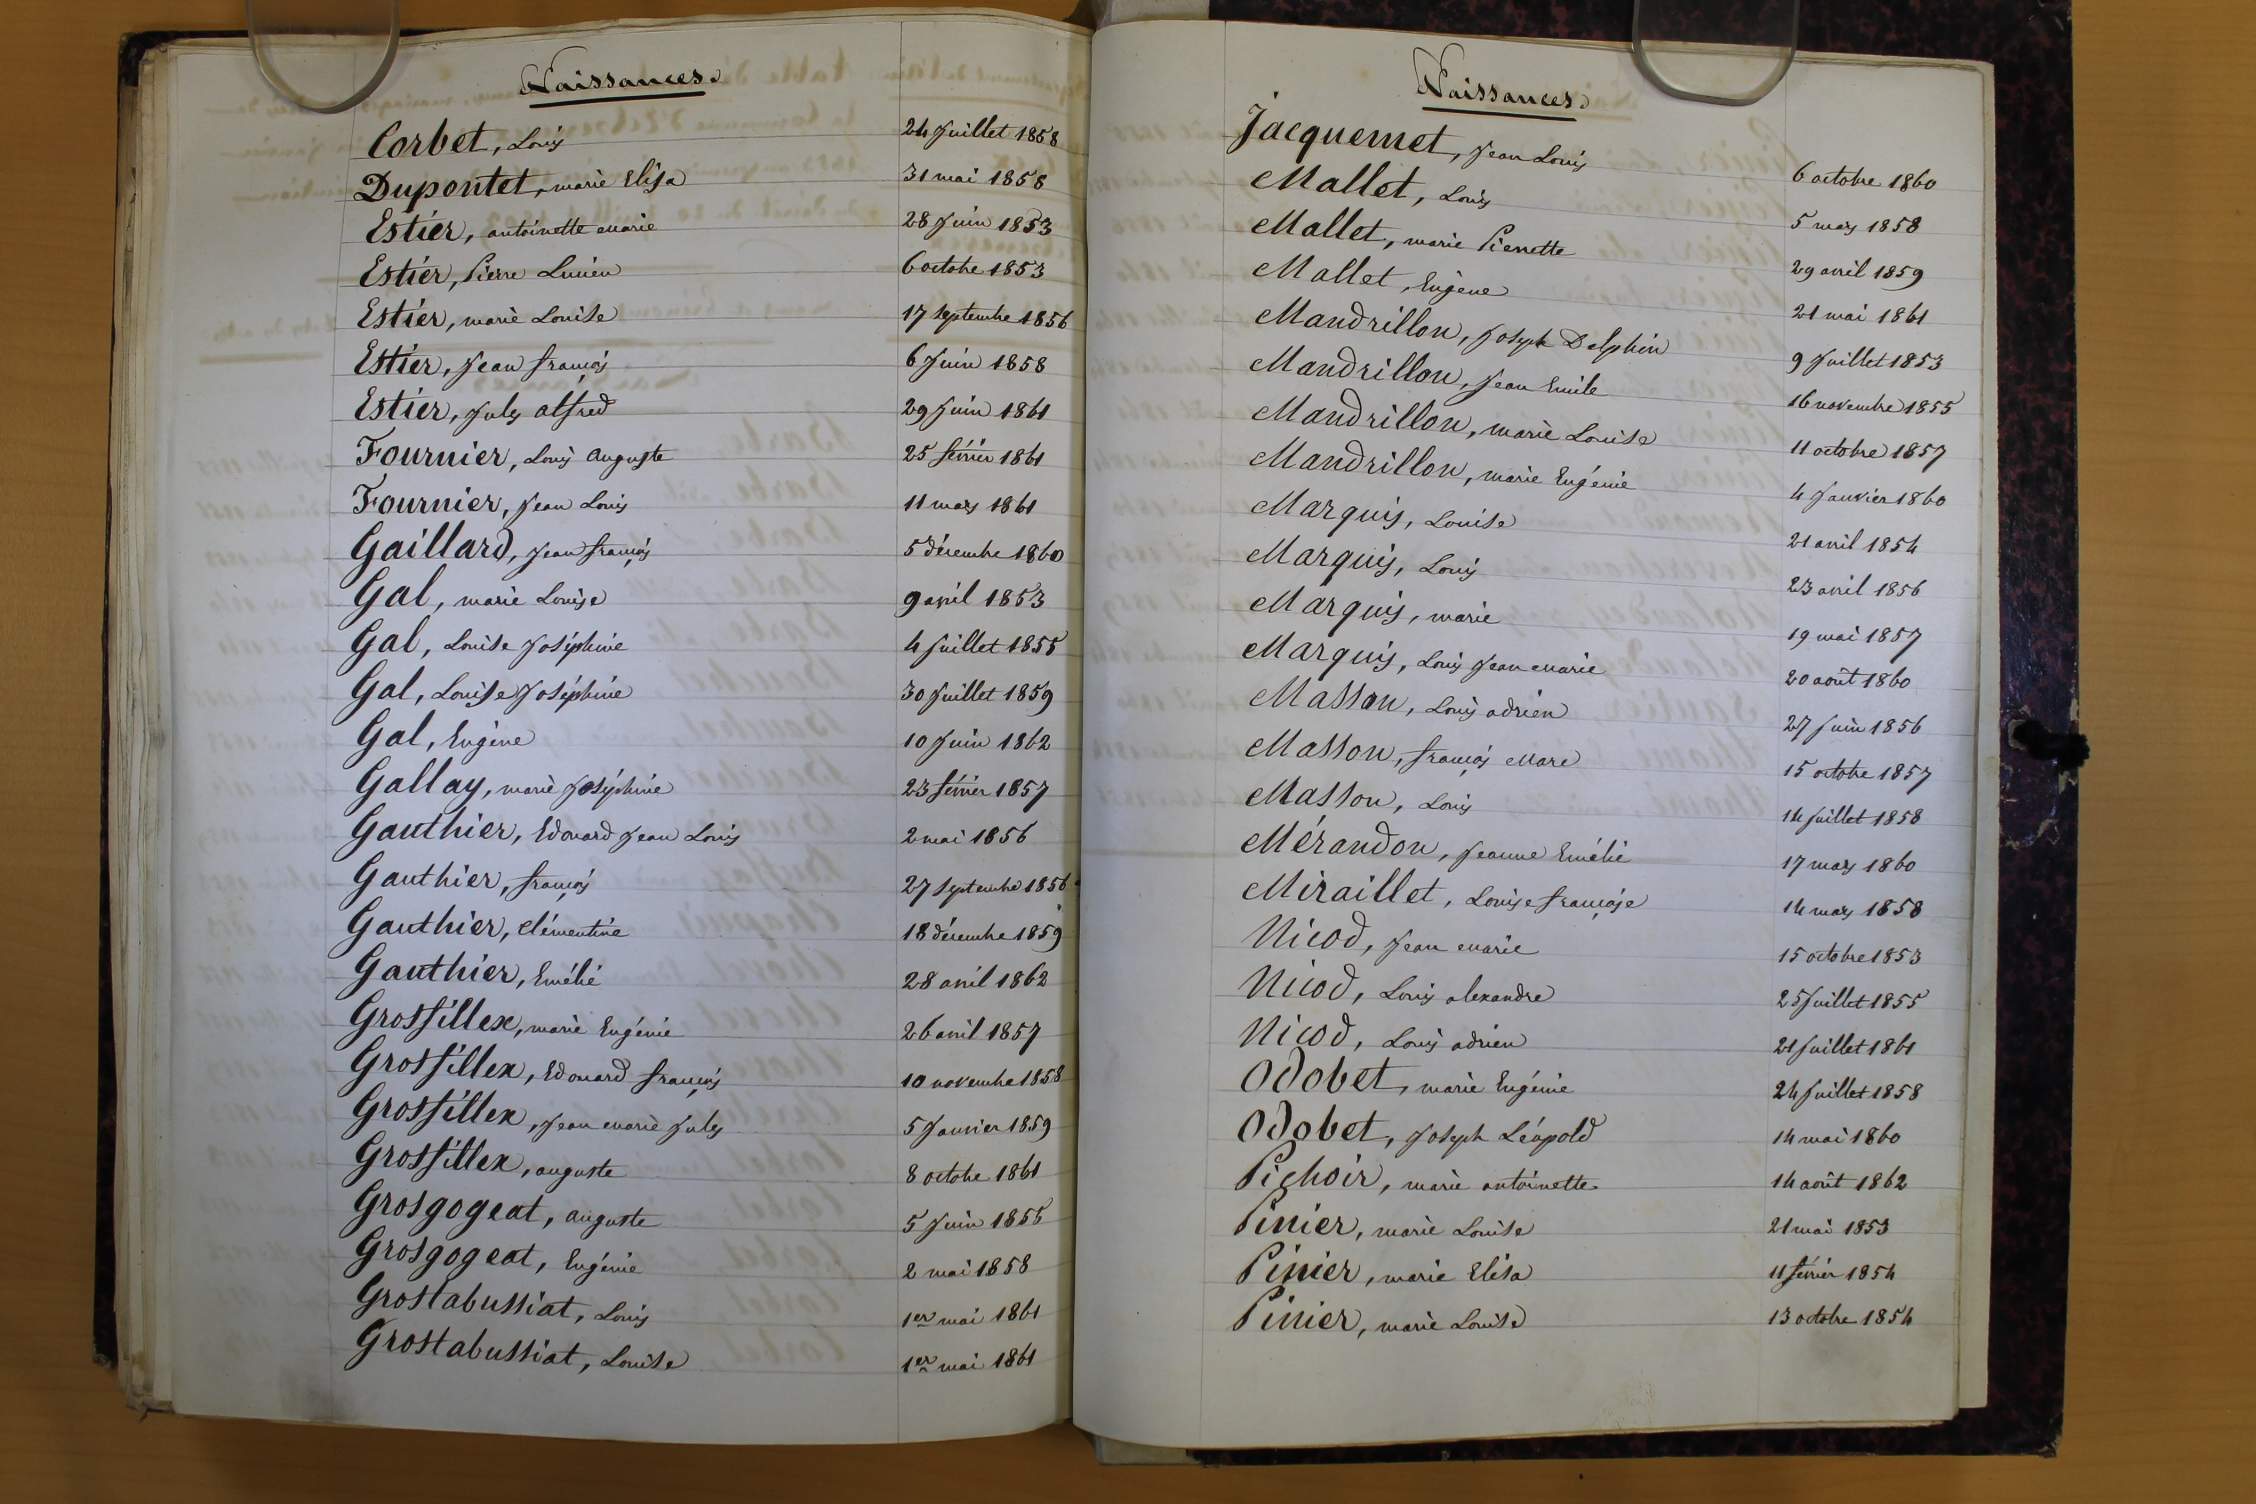 Naissances
Corbet, Louis 24 Juillet 1858
Dupontet, marie Elisa 31 mai 1858
Estier, antoinette marie 28 Juin 1853
Estier, Pierre Lucien 6 octobre 1853
Estier, marie Louise 17 septembre 1856
Estier, Jean françois 6 Juin 1858
Estier, Jules alfred 29 Juin 1861
Fournier, Louis auguste 25 février 1861
Fournier, Jean Louis 11 mars 1861
Gaillard, Jean françois 5 décembre 1860
Gal, marie Louise 9 avril 1853
Gal, Louise Joséphine 4 Juillet 1855
Gal, Louise Joséphine 30 Juillet 1859
Gal, Eugène 10 Juin 1862
Gallay, marie Joséphine 23 février 1857
Gauthier, Edouard Jean Louis 2 mai 1856
Gauthier, françois 27 septembre 1856
Gauthier, clémentine 18 décembre 1859
Gauthier, Emélie 28 avril 1862
Grosfillex, marie Eugénie 26 avril 1857
Grosfillex, Edouard françois 10 novembre 1858
Grosfillex, Jean marie Jules 5 Janvier 1859
Grosfillex, auguste 8 octobre 1861
Grosgogeat, auguste 5 Juin 1855
Grosgogeat, Eugénie 2 mai 1858
Grostabussiat, Louis 1er mai 1861
Grostabussiat, Louise 1er mai 1861
Naissances
Jacquemet, Jean Louis 6 octobre 1860
Mallet, Louis 5 mars 1858
Mallet, marie Pierrette 29 avril 1859
Mallet, Eugène 21 mai 1861
Mandrillon, Joseph Delphin 9 Juillet 1853
Mandrillon, Jean Emile 16 novembre 1855
Mandrillon, marie Louise 11 octobre 1857
Mandrillon, marie Eugénie 4 Janvier 1860
Marquis, Louise 21 avril 1854
Marquis, Louis 23 avril 1856
Marquis, marie 19 mai 1857
Marquis, Louis Jean marie 20 août 1860
Masson, Louis adrien 27 Juin 1856
Masson, françois marc 15 octobre 1857
Masson, Louis 14 Juillet 1858
Mérandon, Jeanne Emélie 17 mars 1860
Miraillet, Louise françoise 14 mars 1858
Nicod, Jean marie 15 octobre 1853
Nicod, Louis alexandre 25 Juillet 1855
Nicod, Louis adrien 21 Juillet 1861
Odobet, marie Eugénie 24 Juillet 1858
Odobet, Joseph Léopold 14 mai 1860
Pichoir, marie antoinette 14 août 1862
Pinier, marie Louise 21 mai 1853
Pinier, marie Elisa 11 février 1854
Pinier, marie Louise 13 octobre 1854